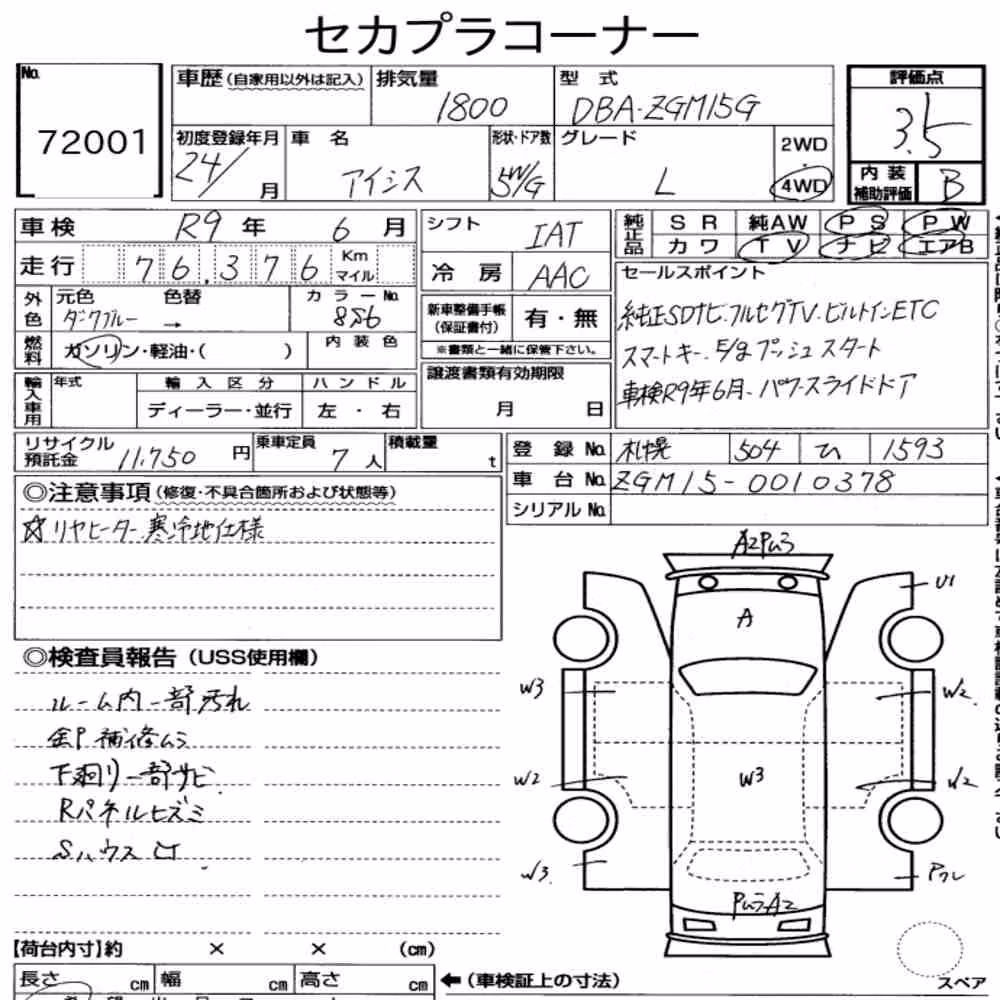 セカプラコーナー
No. 72001
車歴(自家用以外は記入) 排気量 1800 型式 DBA-ZGM15G
評価点 3.5
内装補助評価 B
初度登録年月 24/ 月 車名 アイシス 形状・ドア数 5W/G グレード L 2WD・4WD
車検 R9年 6月
シフト IAT
純正品 SR 純AW PS PW
カワ TV ナビ エアB
走行 76,376 Km マイル
冷房 AAC
外色 元色 ダークブルー 色替 → カラーNo. 8S6
新車整備手帳(保証書付) 有・無
※書類と一緒に保管下さい。
燃料 ガソリン・軽油・( ) 内装色
セールスポイント
純正SDナビ.フルセグTV.ビルトインETC
スマートキー.E/gプッシュスタート
車検R9年6月、パワースライドドア
輸入車用 年式 輸入区分 ハンドル
ディーラー・並行 左・右
譲渡書類有効期限
月 日
リサイクル預託金 11,750円 乗車定員 7人 積載量 t
登録No. 札幌 504 ひ 1593
車台No. ZGM15-0010378
シリアルNo.
◎注意事項(修復・不具合箇所および状態等)
☆リヤヒーター.寒冷地仕様
◎検査員報告(USS使用欄)
ルーム内一部汚れ
全P補修ムラ
下廻り一部サビ
Rパネルヒズミ
A
U1
W3
W2
W2
W3
W2
W3
【荷台内寸】約 × × (cm)
長さ cm 幅 cm 高さ cm
←(車検証上の寸法)
スペア